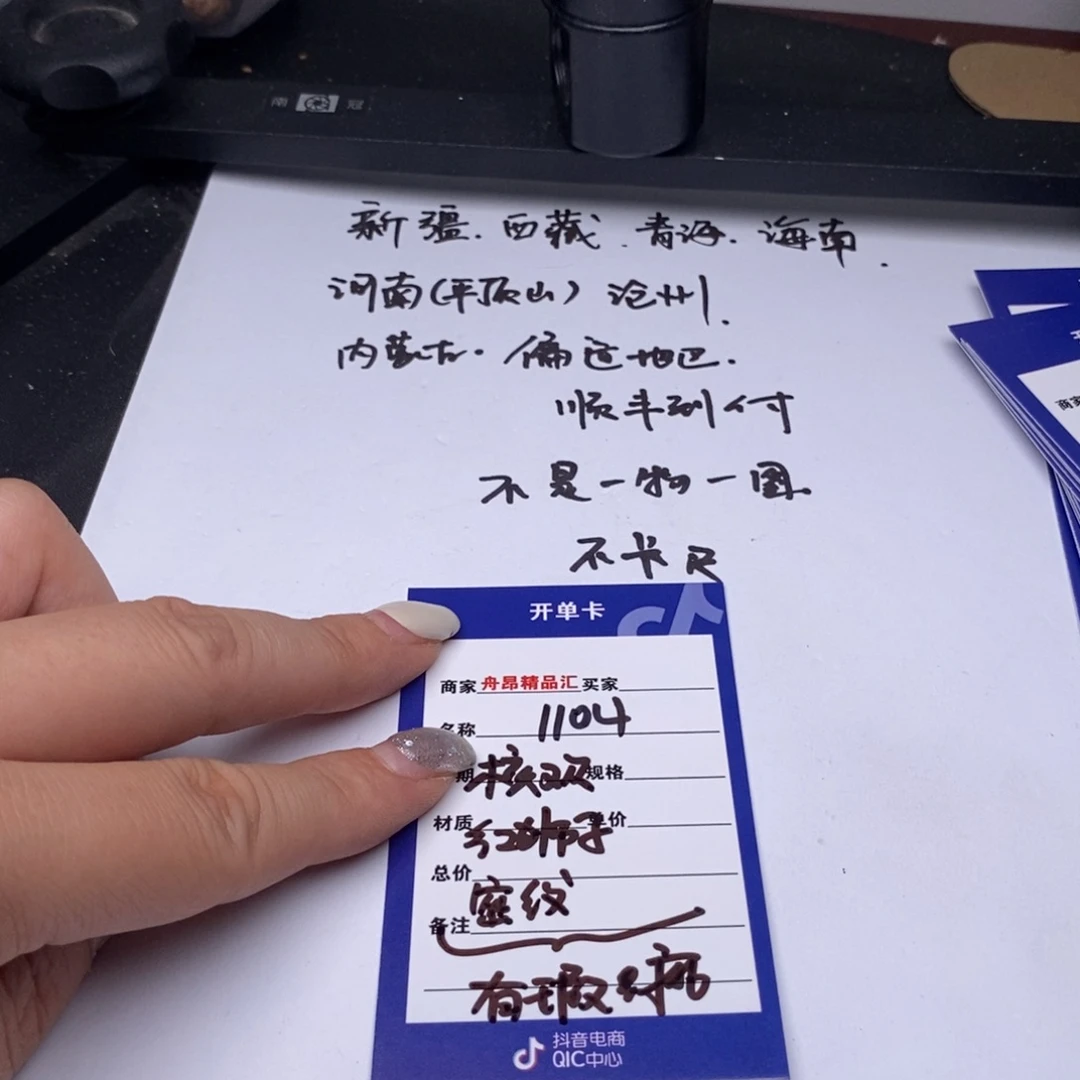 南 冠
新疆.西藏.青海.海南.
河南(平顶山)沧州.
内蒙古.偏远地巴.
顺丰到付
不是一物一图.
不卡尺
开单卡
商家舟昂精品汇买家
名称 1104
期 核双 规格
材质 红狮子 单价
总价
备注 密纹
有瑕纹病
抖音电商
QIC中心
商家